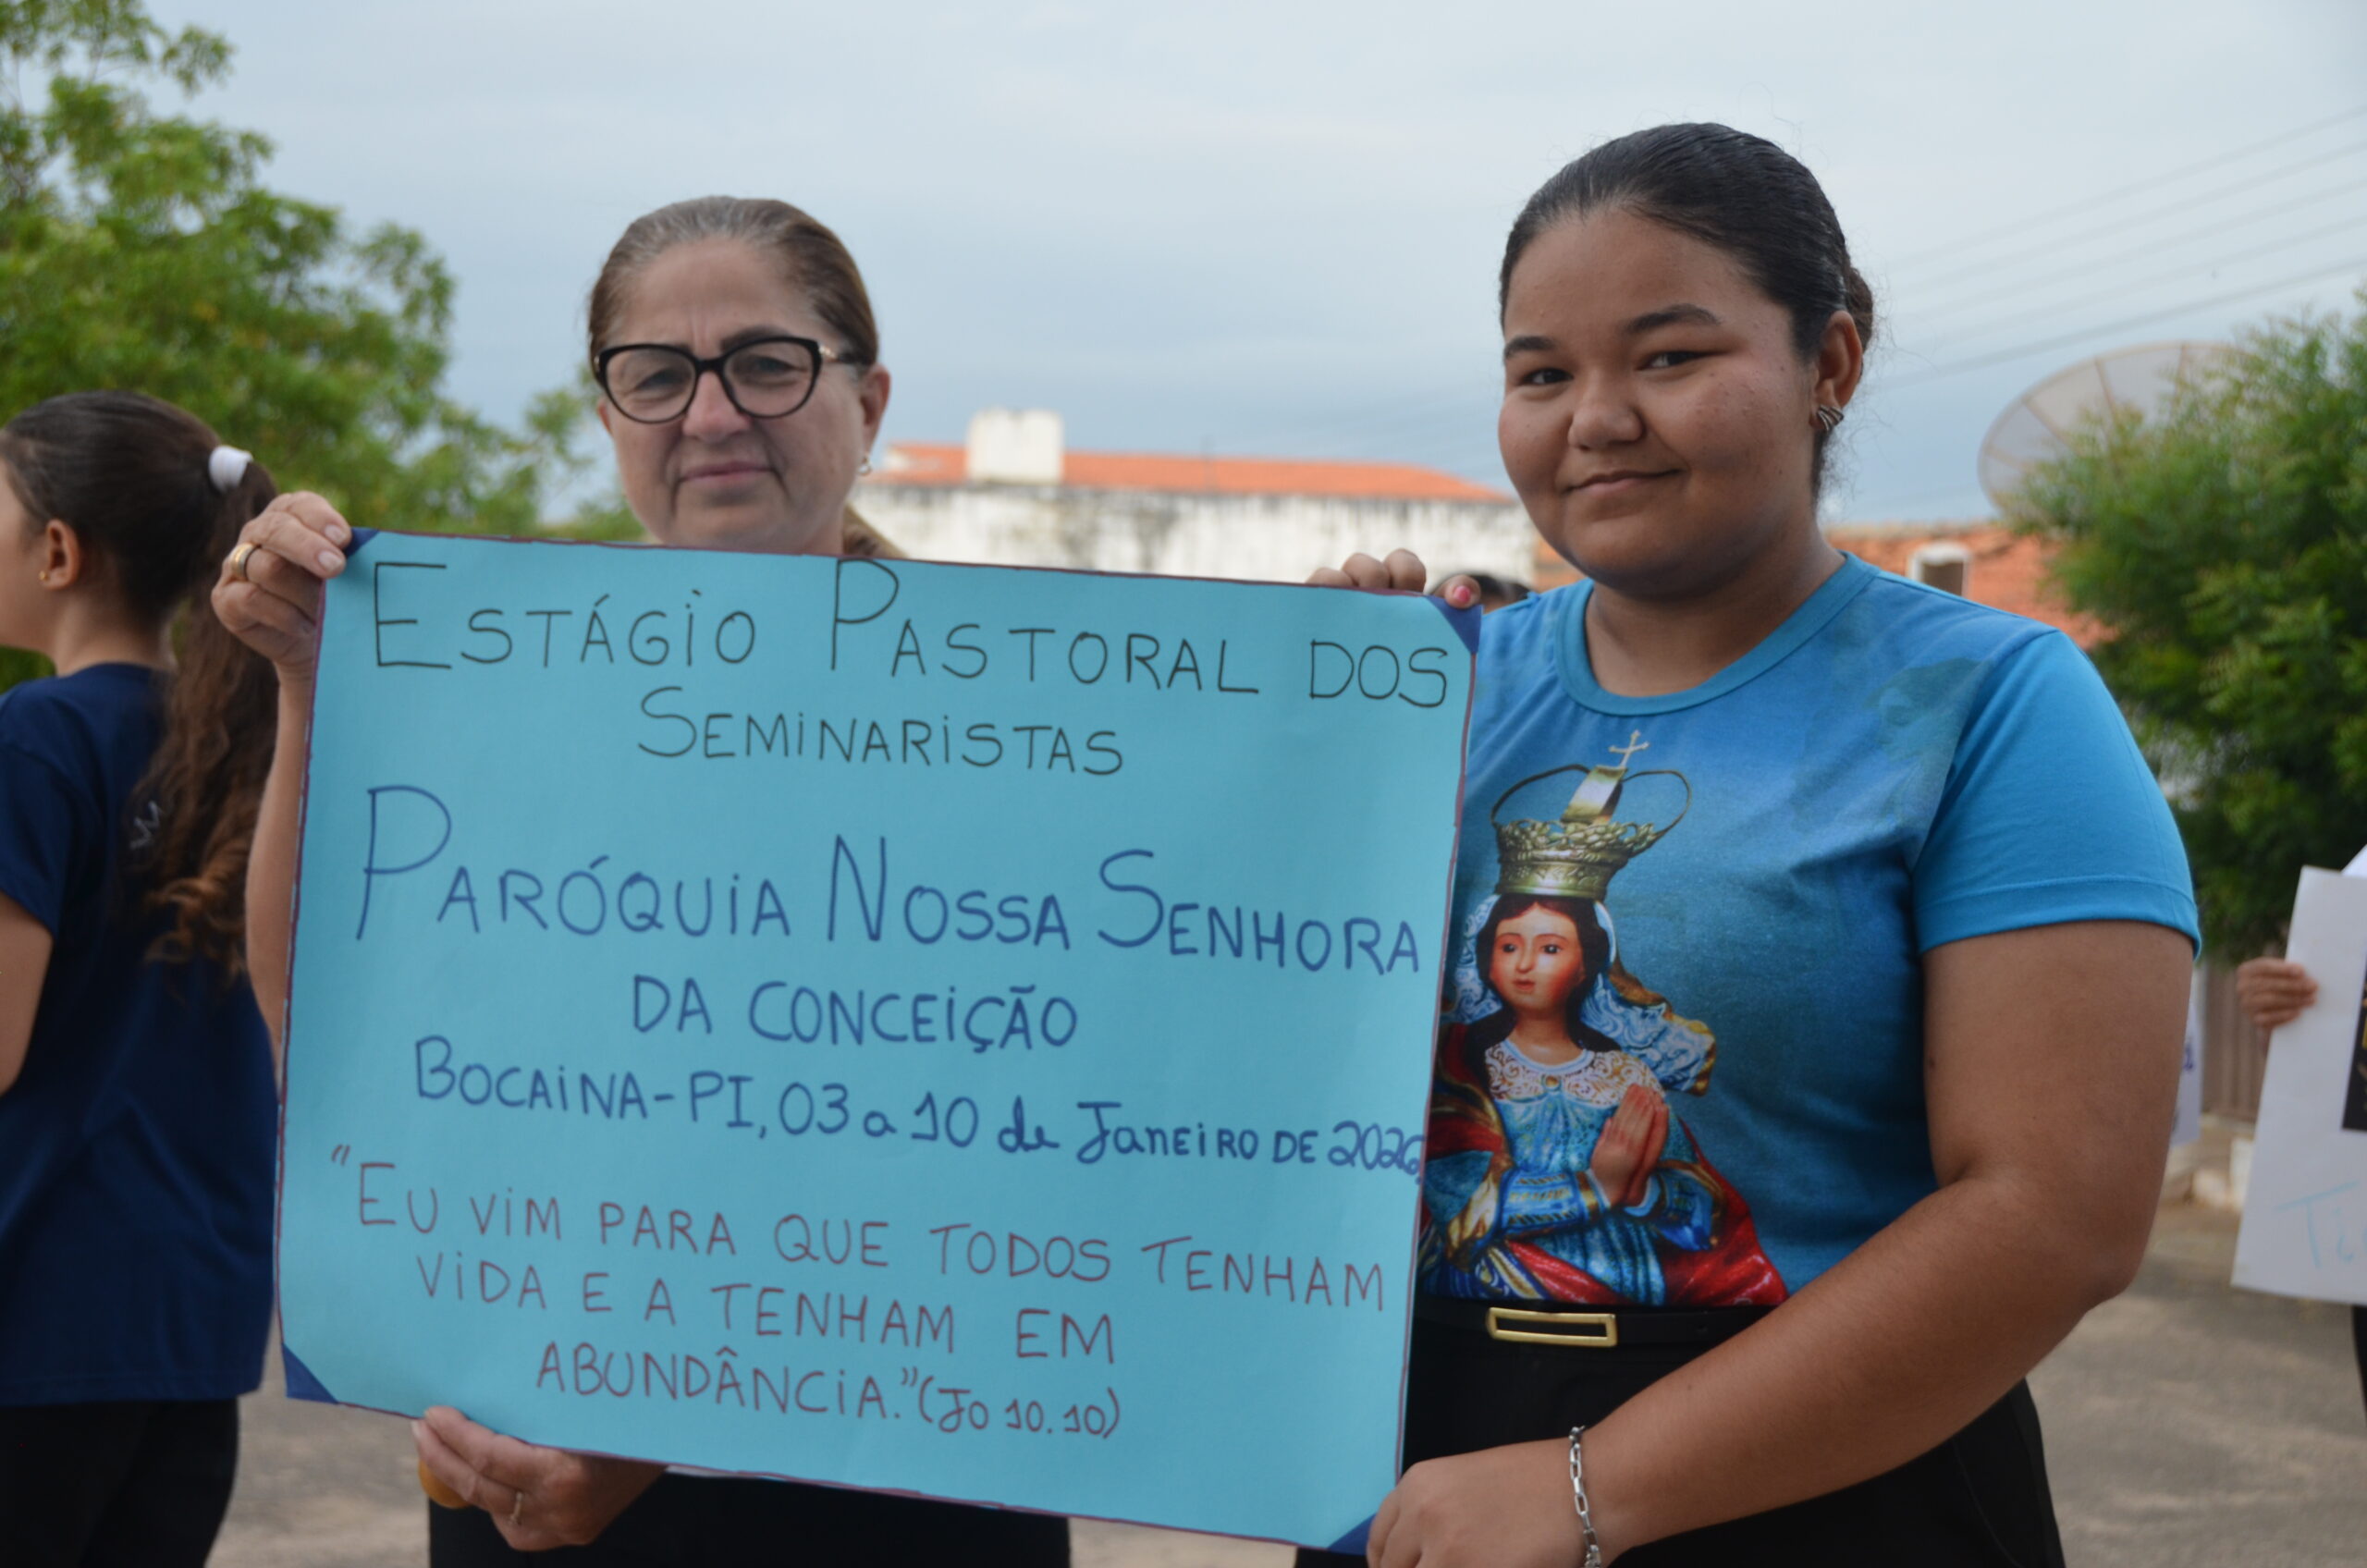 ESTÁGIO PASTORAL DOS
SEMINARISTAS
PARÓQUIA NOSSA SENHORA
DA CONCEIÇÃO
BOCAINA-PI, 03 a 10 de JANEIRO DE 2026
"EU VIM PARA QUE TODOS TENHAM
VIDA E A TENHAM EM
ABUNDÂNCIA." (Jo 10.10)